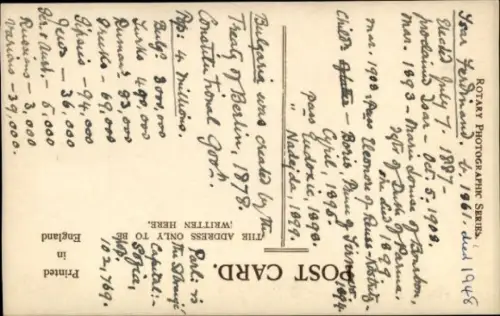 ROTARY PHOTOGRAPHIC SERIES
Tsar Ferdinand. b. 1861. died 1948
Elected July 7. 1887 –
proclaimed Tsar – Oct. 5. 1908.
mar. 1893 – Marie Louise of Bourbon,
dght of Duke of Parma.
she died 1899
mar. 1908 Eleonore of Reuss-Köstritz
Child? – Boris, Prince of Tirnovo 1894
Cyril, 1895.
Eudoxie, 1898.
" Nadejda, 1899.
Bulgaria was created by the
Treaty of Berlin, 1878.
Constitutional Govt.
Pop. 4 millions.
Turks 490,000
Rumans 93,000
Gipsies – 94,000
Jews – 36,000
– 5,000
Russians – 3,000
Various – 39,000.
POST CARD.
THE ADDRESS ONLY TO BE
WRITTEN HERE.
Parl. is
the Sobranje
Capital:–
Sofia,
pop.
102,769.
Printed
in
England